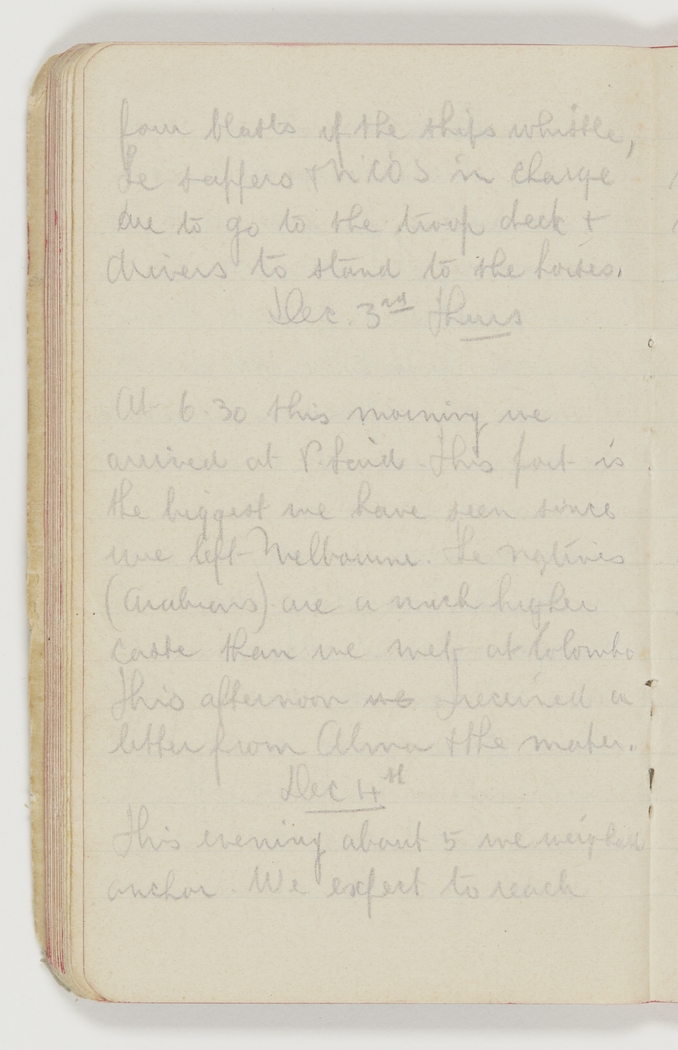 four blasts of the ships whistle,
Le sappers + N COS in charge
are to go to the troop deck +
drivers to stand to the horses.
Dec. 3rd Thurs
At 6.30 this morning we
arrived at P. Said. This port is
the biggest we have seen since
we left Melbourne. Le natives
(Arabians) are a much higher
caste than we met at Colombo
This afternoon we I received a
letter from Alma & the mater.
Dec 4th
This evening about 5 we weighed
anchor. We expect to reach